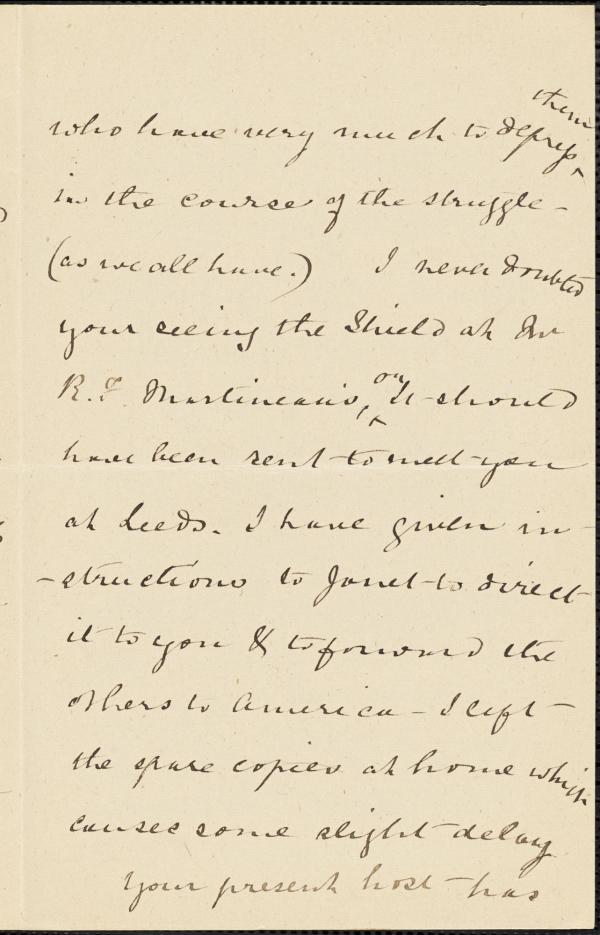 who have very much to depress ^ them
in the course of the struggle -
(as we all have.) I never doubted
your seeing the Shield at Mr
R. F. Martineau's, ^ or It should
have been sent to meet you
at Leeds. I have given in-
-structions to Janet to direct
it to you & to forward the
others to America - I left
the spare copies at home which
causes some slight delay
Your present host has